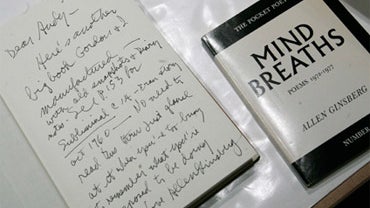 Dear Andy—
Here's another
big book Gordon & I
manufactured—
with old snapshots & Diary
notes. See P. 153 for
Subliminal
story
Oct 1960. No need to
read thru just glance
at it when you're to busy
to remember what you're
supposed to be doing!
Love Allen Ginsberg
THE POCKET POETS
MIND
BREATHS
POEMS 1972-1977
ALLEN GINSBERG
NUMBER